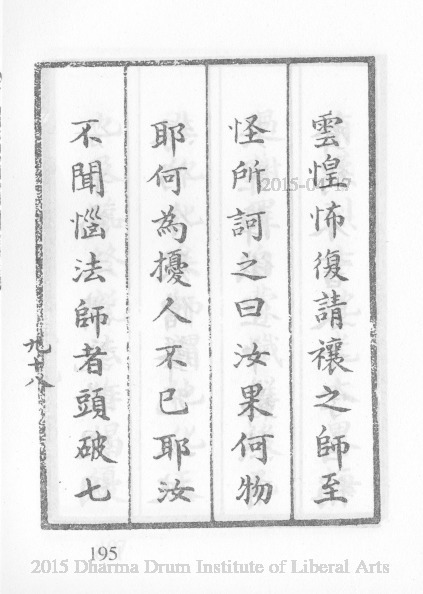 雲惶怖復請禳之師至
怪所訶之曰汝果何物
耶何為擾人不已耶汝
不聞惱法師者頭破七
九十八
195
2015 Dharma Drum Institute of Liberal Arts